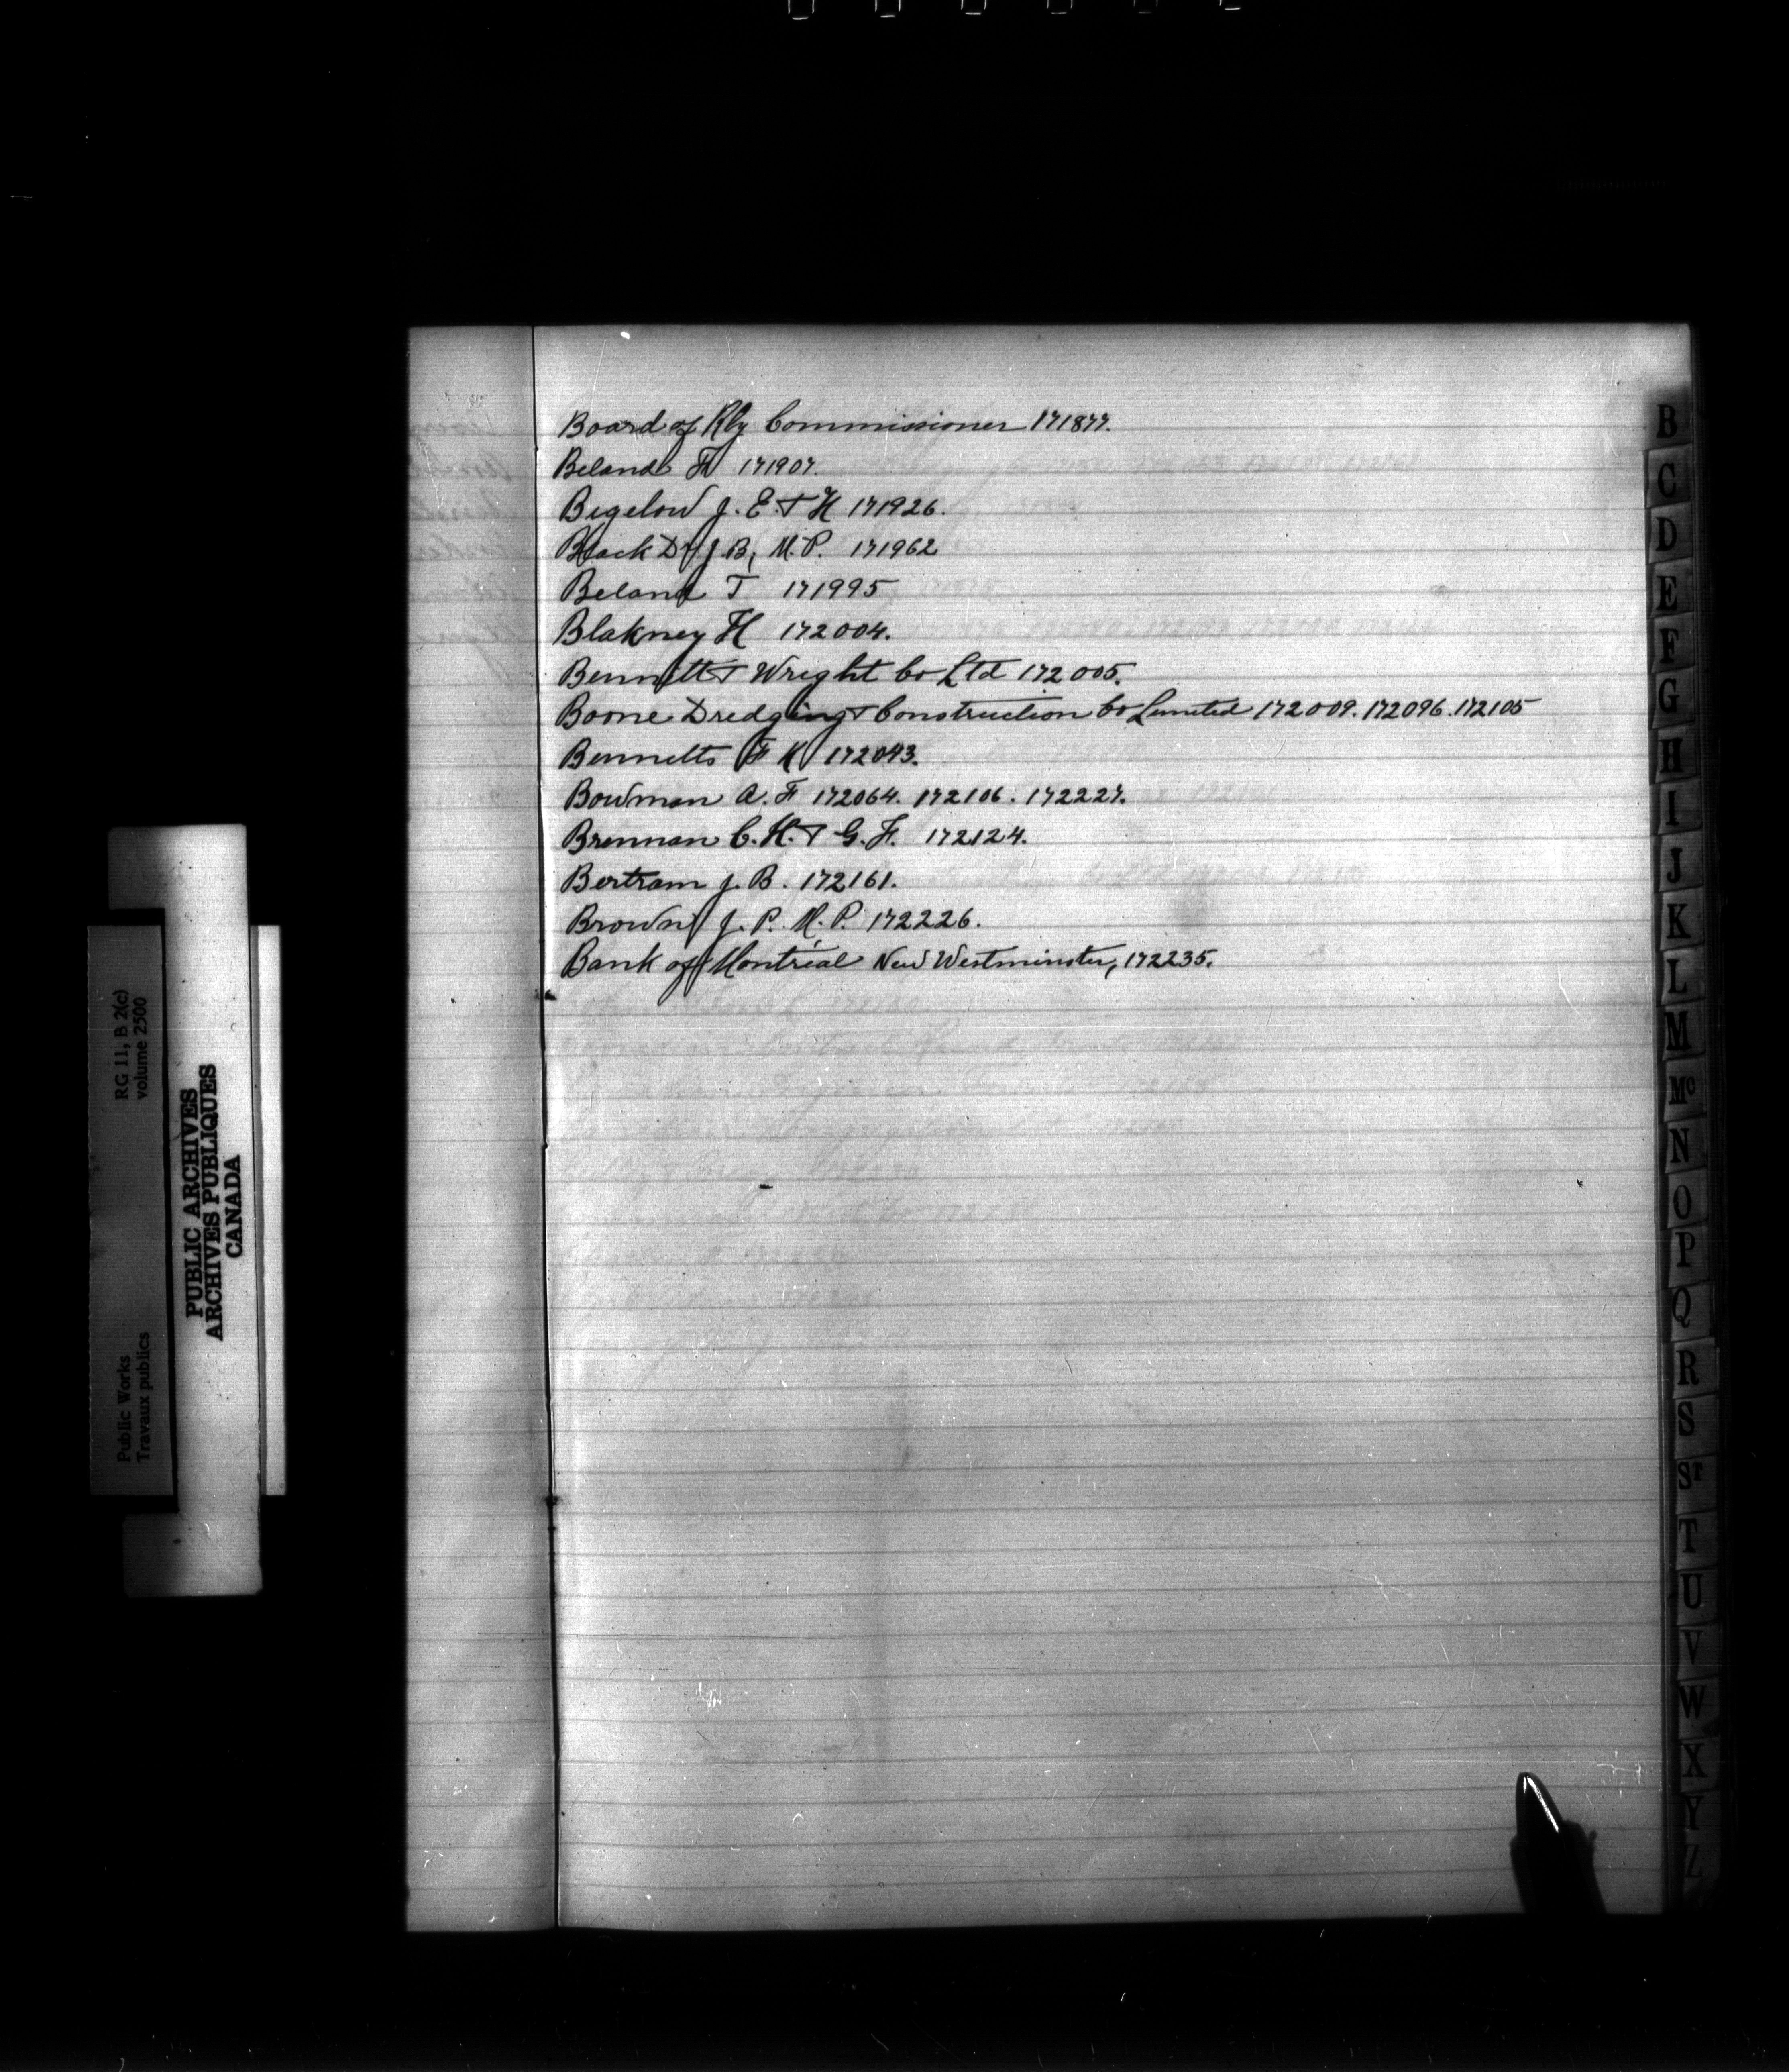 Board of Rly Commissioner 171877.
Beland F 171907.
Bigelow J. E. & H 171926.
Black Dr. J. B, M. P. 171962
Beland T 171995
Blakney H 172004.
Bennett & Wright Co Ltd 172005.
Boone Dredging & Construction Co Limited 172009. 172096. 172105
Bennetts F K 172043.
Bowman A. F 172064. 172106. 172227.
Brennan C. H. & G. F. 172124.
Bertram J. B. 172161.
Brown J. P. M. P. 172226.
Bank of Montréal New Westminster, 172235.
B
C
D
E
F
G
H
I
J
K
L
M
Mc
N
O
P
Q
R
S
ST
T
U
V
W
X
Y
Z
RG 11, B 2(c)
volume 2500
Public Works
Travaux publics
PUBLIC ARCHIVES
ARCHIVES PUBLIQUES
CANADA